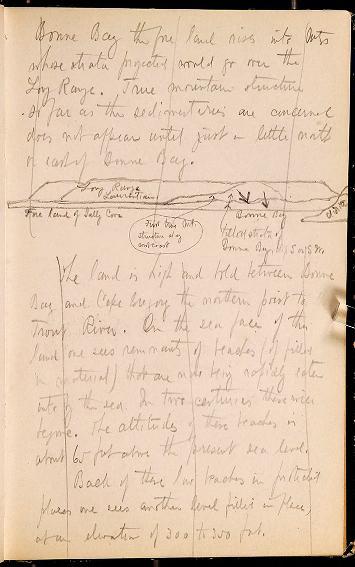 Bonne Bay the fore land rises into Mts
whose strata projected would go over the
Long Range. True mountain structure
so far as the sedimentaries are concerned
does not appear until just a little north
or east of Bonne Bay.
Long Range
Laurentian
Fore land of Sally Cove
First true Mt.
structure along
west coast
Bonne Bay
Bonne Bay
The land is high and bold between Bonne
Bay and Cape Gregory the northern point to
Trout River. On the sea face of this
land one sees remnants of beaches (of filled
in material) that are now being rapidly eaten
into by the sea. In two centuries these will
be gone. The altitudes of these beaches is
about 60 feet above the present sea level.
Back of these low beaches in protected
places one sees another level filled in place,
at an elevation of 300 to 350 feet.